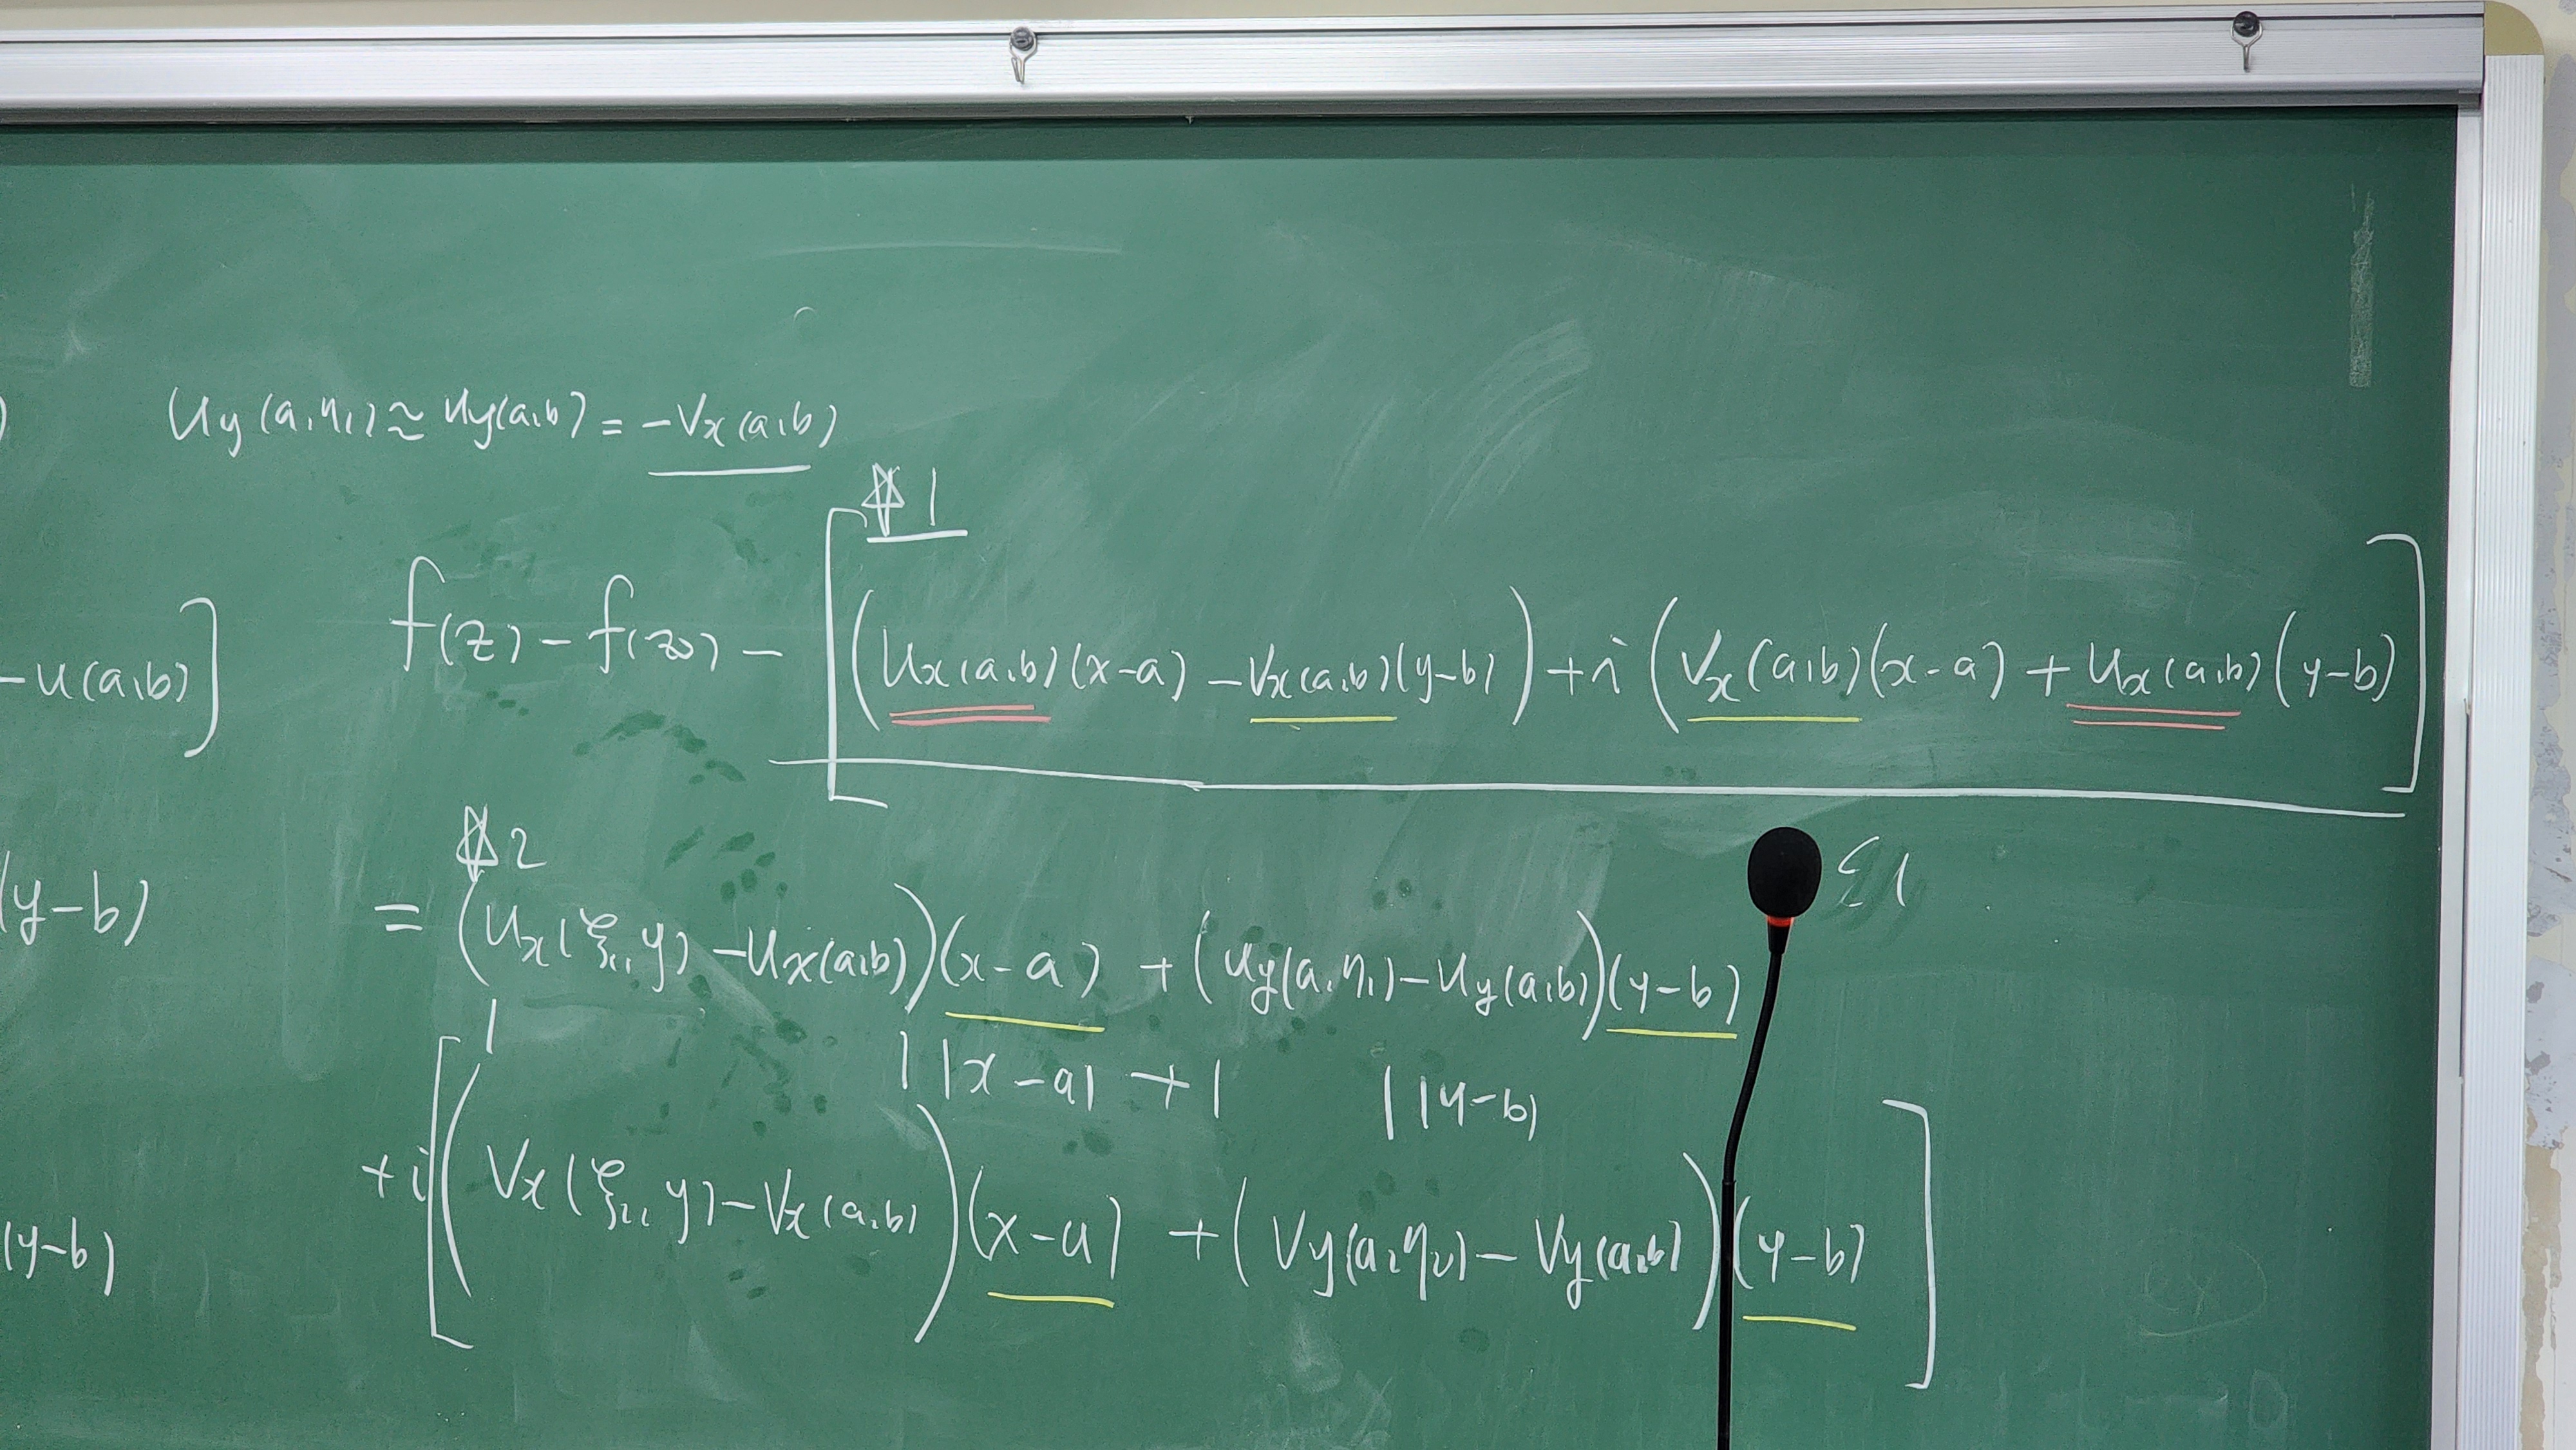 )
u_y(a,η₁) ≈ u_y(a,b) = -v_x(a,b)
☆1
-u(a,b)]
f(z) - f(z₀) - [(u_x(a,b)(x-a) - v_x(a,b)(y-b)) + i(v_x(a,b)(x-a) + u_x(a,b)(y-b)]
☆2
(y-b)
= (u_x(ξ₁,y) - u_x(a,b))(x-a) + (u_y(a,η₁) - u_y(a,b))(y-b)
| | |x-a| + | | |y-b|
+i[(v_x(ξ₂,y) - v_x(a,b))(x-a) + (v_y(a,η₂) - v_y(a,b))(y-b)]
(y-b)